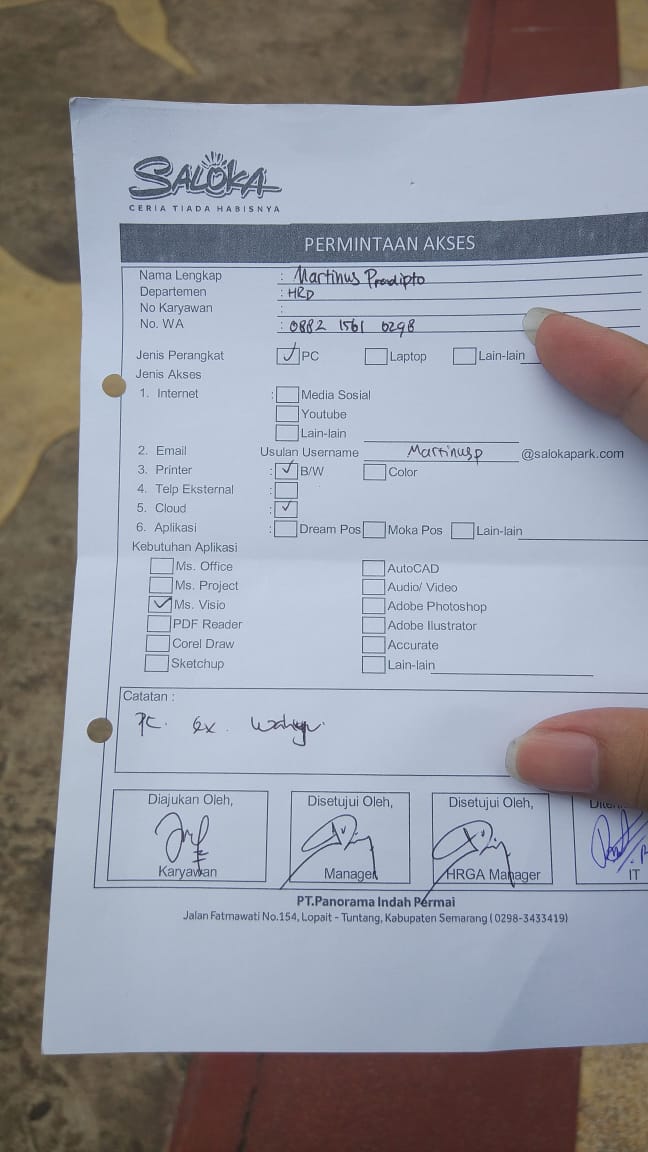 SALOKA
CERIA TIADA HABISNYA
PERMINTAAN AKSES
Nama Lengkap : Martinus Pradipto
Departemen : HRD
No Karyawan :
No. WA : 0882 1561 0298
Jenis Perangkat PC Laptop Lain-lain
Jenis Akses
1. Internet : Media Sosial
Youtube
Lain-lain
2. Email Usulan Username Martinusp @salokapark.com
3. Printer : B/W Color
4. Telp Eksternal :
5. Cloud :
6. Aplikasi : Dream Pos Moka Pos Lain-lain
Kebutuhan Aplikasi
Ms. Office AutoCAD
Ms. Project Audio/ Video
Ms. Visio Adobe Photoshop
PDF Reader Adobe Ilustrator
Corel Draw Accurate
Sketchup Lain-lain
Catatan :
PC. ex. Wahyu
Diajukan Oleh, Disetujui Oleh, Disetujui Oleh,
Karyawan Manager HRGA Manager IT
PT.Panorama Indah Permai
Jalan Fatmawati No.154, Lopait - Tuntang, Kabupaten Semarang ( 0298-3433419)